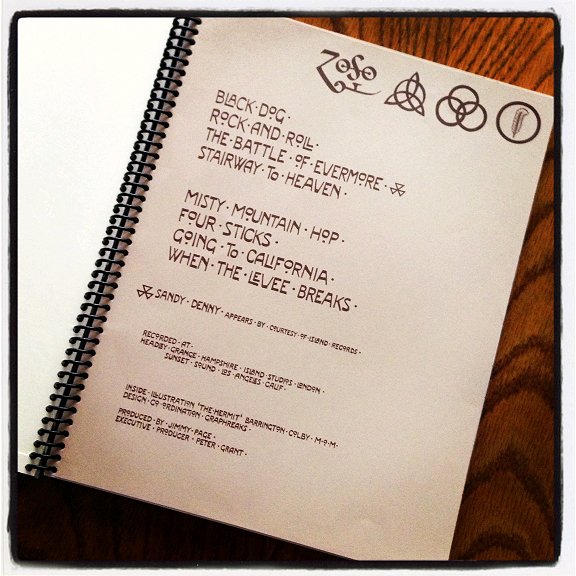 ZOSO
BLACK·DOG·
ROCK·AND·ROLL·
THE·BATTLE·OF·EVERMORE·
STAIRWAY·TO·HEAVEN·
MISTY·MOUNTAIN·HOP·
FOUR·STICKS·
GOING·TO·CALIFORNIA·
WHEN·THE·LEVEE·BREAKS·
SANDY·DENNY·APPEARS·BY·COURTESY·OF·ISLAND·RECORDS·
RECORDED·AT·
HEADLEY·GRANGE·HAMPSHIRE·ISLAND·STUDIOS·LONDON·
SUNSET·SOUND·LOS·ANGELES·CALIF·
INSIDE·ILLUSTRATION·'THE·HERMIT'·BARRINGTON·COLBY·M·O·M·
DESIGN·CO·ORDINATION·GRAPHREAKS·
PRODUCED·BY·JIMMY·PAGE·
EXECUTIVE·PRODUCER·PETER·GRANT·